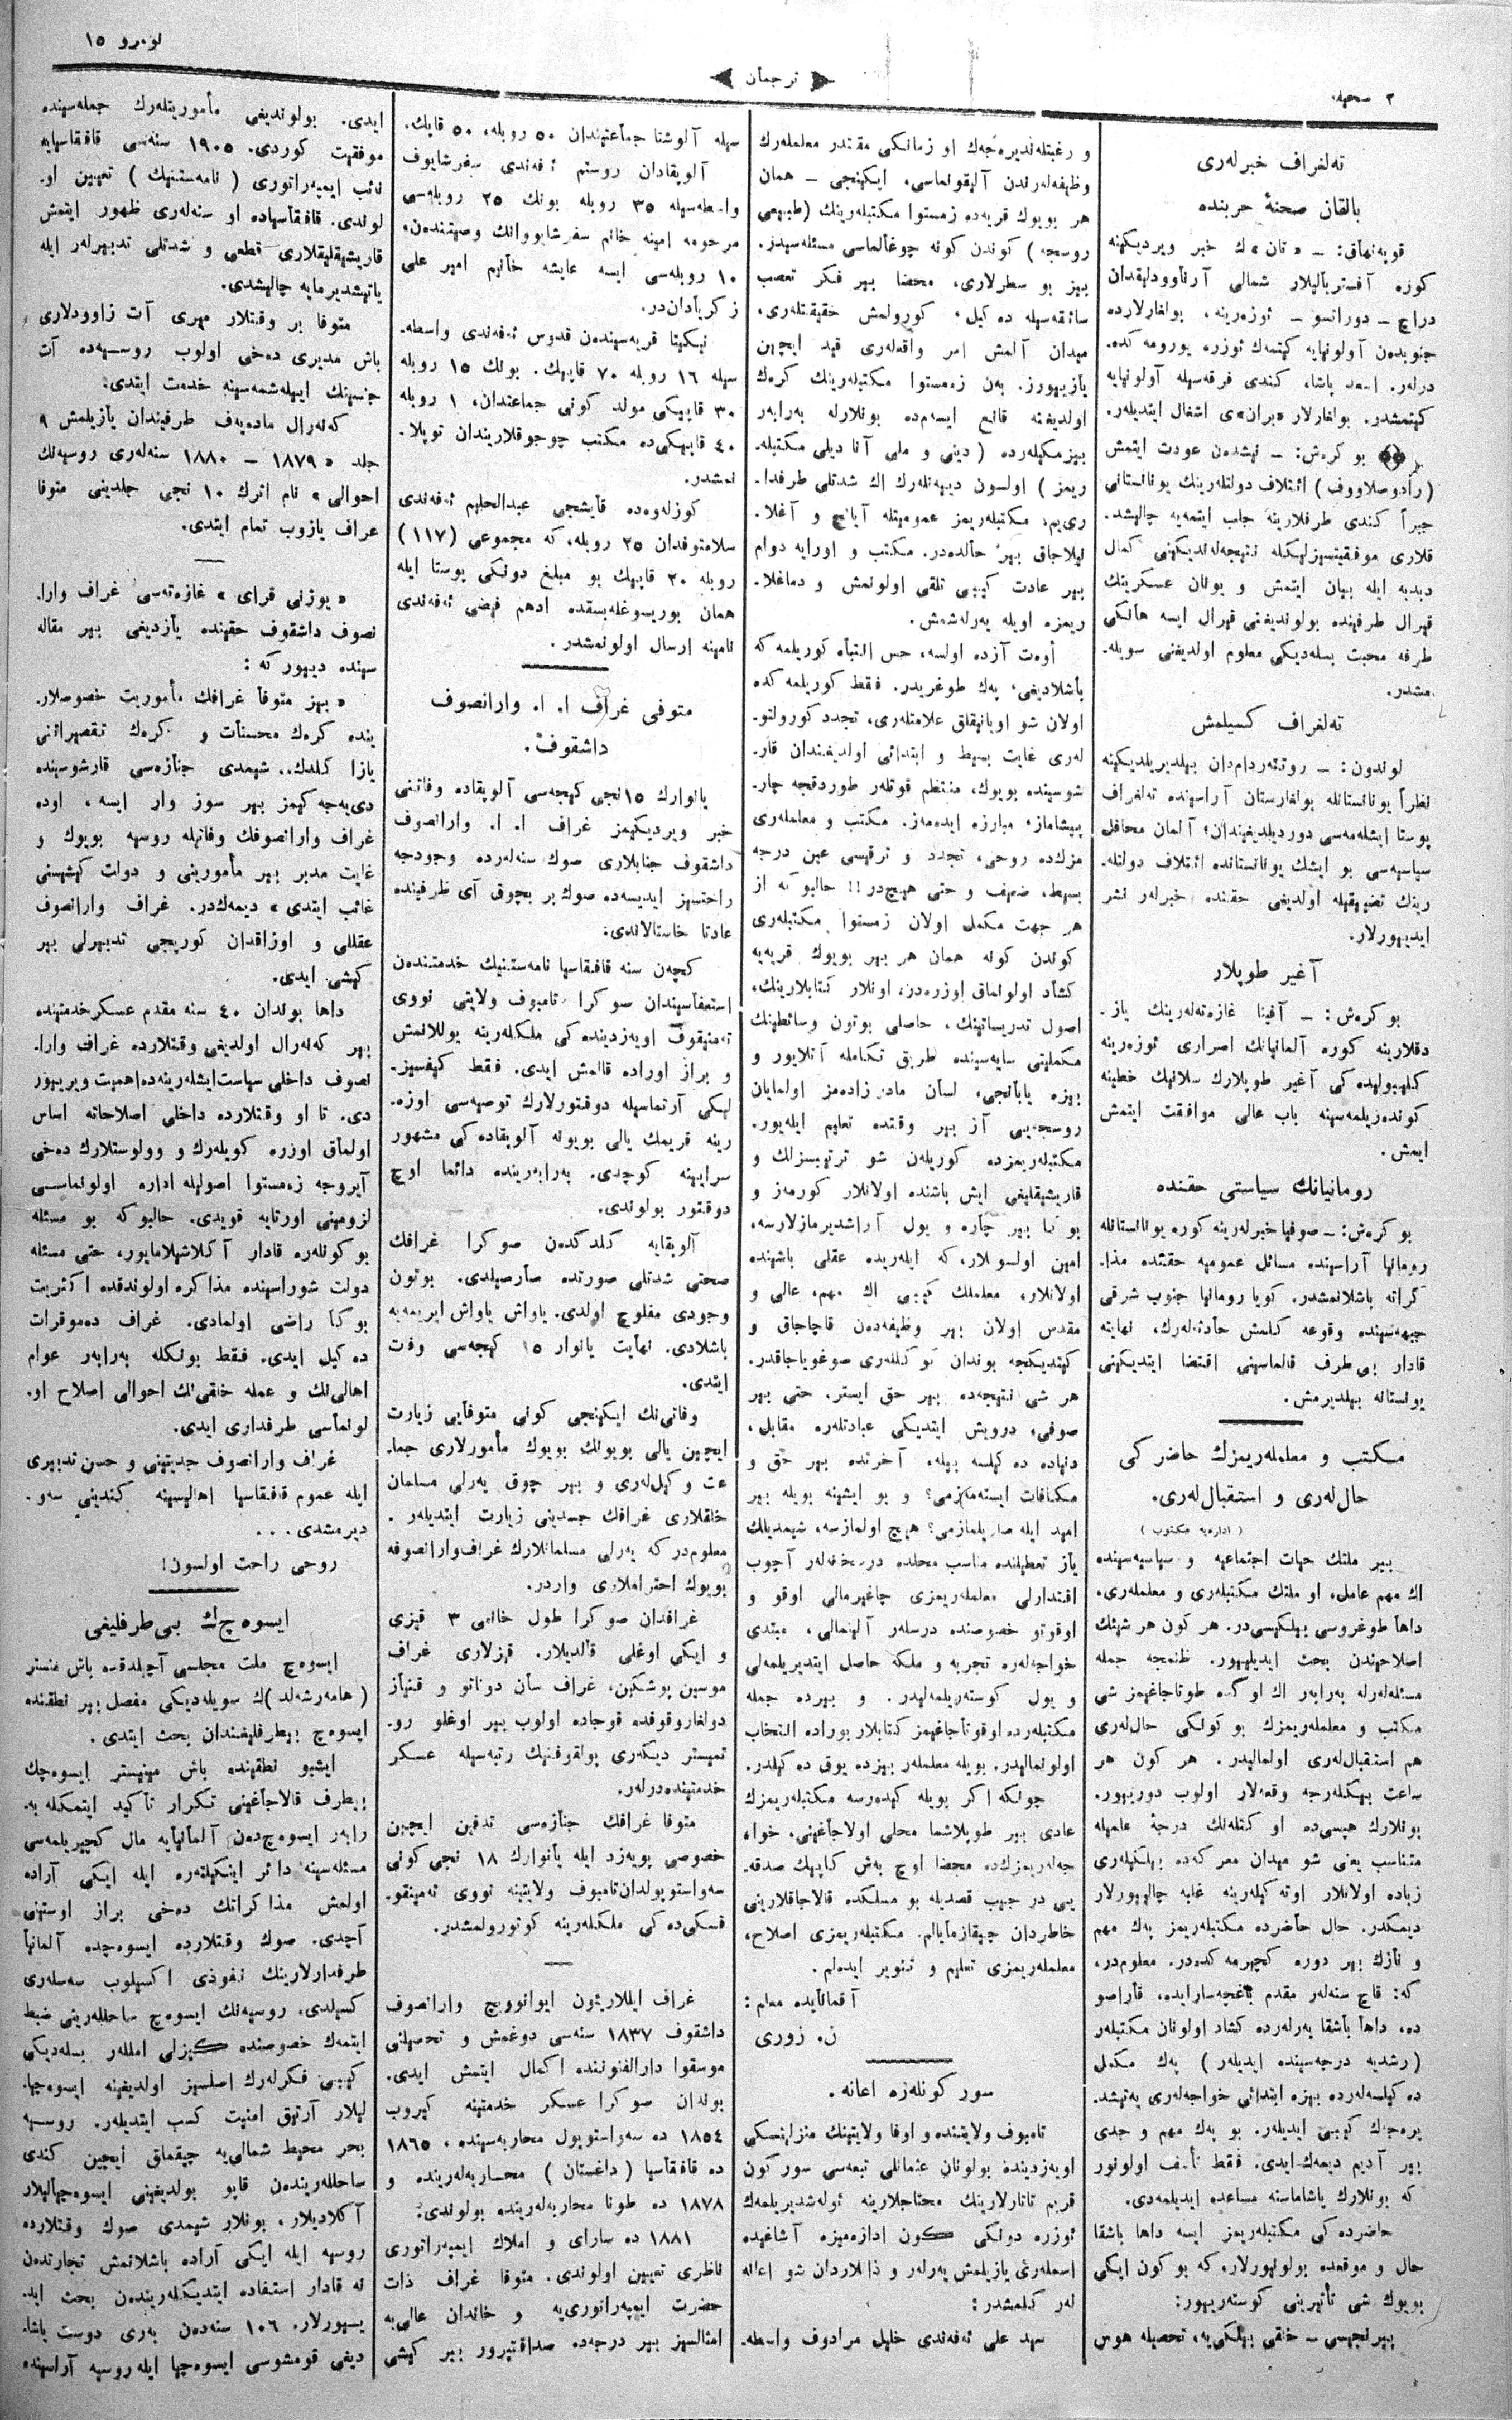 ٢ صحیفه
ترجمان
نومرو ١٥
ته‌لغراف خبرله‌ری
بالقان صحنۀ حربنده
قوپه‌نهاق: — «تان»ك خبر ویردیکینه
کوره آفستریالیلار شمالی آرناوودلیقدان
دراچ — دورانسو — ئوزه‌رینه، بولغارلارده
جنوبدن آولونیایه کیتمه‌ك ئوزره یورومه کده‌
درله‌ر. اسعد پاشا، کندی فرقه‌سیله آولونیایه
کیتمشدر. بولغارلار «بران»ی اشغال ایتدیله‌ر.
بو کره‌ش: — نیشدن عودت ایتمش
(رادوصلاووف) ائتلاف دولتله‌رینك یونانستانی
جبراً کندی طرفلارینه جلب ایتمه‌یه چالیشد‌
قلاری موفقیتسزلیکله نتیجه‌له‌ندیکینی کمال
دبدبه ایله بیان ایتمش و یونان عسکرینك
قیرال طرفینده بولوندیغنی قیرال ایسه هانکی
طرفه محبت بسله‌دیکی معلوم اولدیغنی سویله‌
مشدر.
ته‌لغراف کسیلمش
لوندون: — روتته‌ردام‌دان بیلدیریلدیکینه
نظراً یونانستانله بولغارستان آراسینده ته‌لغراف
پوستا ایشله‌مه‌سی دوردیریلدیغیندان؛ آلمان محافل
سیاسیه‌سی بو ایشك یونانستانده ائتلاف دولتله‌
رینك تضییقیله اولدیغی حقنده خبرله‌ر نشر
ایدیپورلار.
آغیر طوپلار
بو کره‌ش: — آفینا غازه‌ته‌له‌رینك یاز‌
دقلارینه کوره آلمانیانك اصراری ئوزه‌رینه
کلیبولیده کی آغیر طوپلارك سلانیك خطینه
کونده‌ریلمه‌سینه باب عالی موافقت ایتمش
ایمش.
رومانیانك سیاستی حقنده
بو کره‌ش: — صوفیا خبرله‌رینه کوره یونانستانله
رومانیا آراسینده مسائل عمومیه حقنده مذا‌
کراته باشلانمشدر. کویا رومانیا جنوب شرقی
جبهه‌سینده وقوعه کلمش حادثه‌له‌رك، نهایته
قادار بی‌طرف قالماسینی اقتضا ایتدیکینی
یونستانه بیلدیرمش.
مکتب و معلمله‌ریمزك حاضر کی
حال‌له‌ری و استقبال‌له‌ری.
(اداره‌یه مکتوب)
بیر ملتك حیات اجتماعیه و سیاسیه‌سینده
اك مهم عامل، او ملتك مکتبله‌ری و معلمله‌ری،
داها طوغروسی بیلکیسی‌در. هر کون هر شیئك
اصلاحیندن بحث ایدیلییور. ظنمجه جمله
مسئله‌له‌رله به‌رابه‌ر اك او کده طوتاجاغیمز شی
مکتب و معلمله‌ریمزك بو کونکی حال‌له‌ری
هم استقبال‌له‌ری اولمالیدر. هر کون هر
ساعت بیکله‌رجه وقعه‌لار اولوب دوریپور.
بونلارك هپسی‌ده او کتله‌نك درجۀ علمیله
متناسب یعنی شو میدان معرکه‌ده بیلکیله‌ری
زیاده اولانلار اوته کیله‌رینه غلبه چالیپورلار
دیمکدر. حال حاضرده مکتبله‌ریمز پك مهم
و نازك بیر دوره کچیرمه کده‌در. معلوم‌در،
که: قاچ سنه‌له‌ر مقدم باغچه‌سارایده، قاراصو
ده، داها باشقا یه‌رله‌رده کشاد اولونان مکتبله‌ر
(رشدیه درجه‌سینده ایدیله‌ر) پك مکمل
ده کیلسه‌له‌رده بیزه ابتدائی خواجه‌له‌ری یه‌تیشد‌
یره‌جك کیبی ایدیله‌ر. بو پك مهم و جدی
بیر آدیم دیمه‌ك‌ایدی. فقط تأسف اولونور
که بونلارك یاشاماسنه مساعده ایدیلمه‌دی.
حاضرده کی مکتبله‌ریمز ایسه داها باشقا
حال و موقعده بولونیورلار، که بو کون ایکی
بویوك شی تأثیرینی کوسته‌ریپور:
بیرنجیسی — خلقی بیلکی‌یه، تحصیله هوس
و رغبتله‌ندیره‌جه‌ك او زمانکی مقتدر معلمله‌رك
وظیفه‌له‌رندن آلیقونماسی، ایکینجی — همان
هر بویوك قریه‌ده زمستوا مکتبله‌رینك (طبیعی
روسجه) کوندن کونه چوغالماسی مسئله‌سیدر.
بیز بو سطرلاری، محضا بیر فکر تعصب
سائقه‌سیله ده کیل؛ کورولمش حقیقتله‌ری،
میدان آلمش امر واقعله‌ری قید ایچین
یازییورز. بن زه‌مستوا مکتبله‌رینك کره‌ك
اولدیغنه قانع ایسه‌م‌ده بونلارله به‌رابه‌ر
بیزمکیله‌رده (دینی و ملی آنا دیلی مکتبله‌
ریمز) اولسون دیینله‌رك اك شدتلی طرفدا‌
ری‌یم، مکتبله‌ریمز عمومیتله آیانچ و آغلا‌
نیلاجاق بیر حالده‌در. مکتب و اورایه دوام
بیر عادت کیبی تلقی اولونمش و دماغلا‌
ریمزه اویله یه‌رله‌شمش.
أوه‌ت آزده اولسه، حس انتباه کوریلمه که
باشلادیغی؛ پك طوغریدر. فقط کوریلمه کده
اولان شو اویانیقلق علامتله‌ری، تجدد کورولتو‌
له‌ری غایت بسیط و ابتدائی اولدیغندان قار‌
شوسینده بویوك، منتظم قوتله‌ر طوردقجه چار‌
پیشاماز؛ مبارزه ایده‌مه‌ز. مکتب و معلمله‌ری
مزك‌ده روحی، تجدد و ترقیسی عین درجه
بسیط، ضعیف و حتی هیچ‌در!! حالبوکه از
هر جهت مکمل اولان زمستوا مکتبله‌ری
کوندن کونه همان هر بیر بویوك قریه‌یه
کشاد اولونماق اوزره‌در، اونلار کتابلارینك،
اصول تدریساتینك، حاصلی بوتون وسائطینك
مکملیتی سایه‌سینده طریق تکامله آتلایور و
بیزه یابانجی، لسان مادر زاده‌مز اولمایان
روسجه‌یی آز بیر وقتده تعلیم ایله‌یور.
مکتبله‌ریمزده کوریلن شو ترتیبسزلك و
قاریشیقلیغی ایش باشنده اولانلار کورمه‌ز و
بو کا بیر چاره و یول آراشدیرمازلارسه،
امین اولسونلار، که ایله‌ریده عقلی باشینده
اولانلار، معلملك کیبی اك مهم، عالی و
مقدس اولان بیر وظیفه‌دن قاچاجاق و
کیتدیکجه بوندان کو کللری صوغویاجاقدر.
هر شی نتیجه‌ده بیر حق ایستر. حتی بیر
صوفی، درویش ایتدیکی عبادتله‌ره مقابل،
دنیاده ده کیلسه بیله، آخرتده بیر حق و
مکافات ایسته‌مازمی؟ و بو ایشینه بویله بیر
امید ایله صاریلمازمی؟ هیچ اولمازسه، شیمدیلك
یاز تعطیلنده مناسب محلده درسخانه‌له‌ر آچوب
اقتدارلی معلمله‌ریمزی چاغیرمالی اوقو و
اوقوتو خصوصنده درسله‌ر آلینمالی، مبتدی
خواجه‌له‌ره تجربه و ملکه حاصل ایتدیریلمه‌لی
و یول کوسته‌ریلمه‌لیدر. و بیرده جمله
مکتبله‌رده اوقوتاجاغیمز کتابلار بوراده انتخاب
اولونمالیدر. بویله معلمله‌ر بیزده یوق ده کیلدر.
چونکه اکر بویله کیده‌رسه مکتبله‌ریمزك
عادی بیر طوپلاشما محلی اولاجاغینی، خوا‌
جه‌له‌ریمزك‌ده محضا اوچ به‌ش کاپیك صدقه‌
یی در جیب قصدیله بو مسلکده قالاجاقلارینی
خاطردان چیقارمایالم. مکتبله‌ریمزی اصلاح،
معلمله‌ریمزی تعلیم و تنویر ایده‌لم.
آقمانایده معلم:
ن. زوری
سور کونله‌ره اعانه.
تامبوف ولایتنده و اوفا ولایتینك منزلینسکی
اویه‌زدینده بولونان عثمانلی تبعه‌سی سور کون
قریم تاتارلارینك محتاجلارینه ئوله‌شدیریلمه‌ك
ئوزره دونکی کون اداره‌میزه آشاغیده
اسمله‌ری یازیلمش یه‌رله‌ر و ذاتلاردان شو اعانه
له‌ر کلمشدر:
سید علی ئه‌فه‌ندی خلیل مرادوف واسطه‌
سیله آلوشتا جماعتیندان ٥٠ روبله، ٥٠ قاپك.
آلوپقادان روستم ئه‌فه‌ندی سفرشایوف
واسطه‌سیله ٣٥ روبله بونك ٢٥ روبله‌سی
مرحومه امینه خانم سفرشایووانك وصیتندن،
١٠ روبله‌سی ایسه عایشه خانم امیر علی
زکریادان‌در.
نیکیتا قریه‌سیندن قدوس ئه‌فه‌ندی واسطه‌
سیله ١٦ روبله ٧٠ قاپیك. بونك ١٥ روبله
٣٠ قاپیکی مولد کونی جماعتدان، ١ روبله
٤٠ قاپیکی‌ده مکتب چوجوقلاریندان توپلا‌
نمشدر.
کوزله‌وه‌ده قایشجی عبدالحلیم ئه‌فه‌ندی
سلامتوفدان ٢٥ روبله، که مجموعی (١١٧)
روبله ٢٠ قاپیك بو مبلغ دونکی پوستا ایله
همان بوریسوغله‌بسقده ادهم فیضی ئه‌فه‌ندی
نامینه ارسال اولونمشدر.
متوفی غراف ا. ا. وارانصوف
داشقوف.
یانوارك ١٥نجی کیجه‌سی آلوپقاده وفاتنی
خبر ویردیکیمز غراف ا. ا. وارانصوف
داشقوف جنابلاری صوك سنه‌له‌رده وجودجه
راحتسیز ایدیسه‌ده صوك بر بچوق آی ظرفینده
عادتا خاستالاندی.
کچه‌ن سنه قافقاسیا نامه‌ستنیك خدمتندن
استعفاسیندان صو کرا تامبوف ولایتی نووی
ته‌منیقوف اویه‌زدینده کی ملکله‌رینه یوللانمش
و براز اوراده قالمش ایدی. فقط کیفسیز‌
لیکی آرتماسیله دوقتورلارك توصیه‌سی اوزه‌
رینه قریمك یالی بوینه آلوپقاده کی مشهور
سراینه کوچدی. به‌رابه‌رینده دائما اوچ
دوقتور بولوندی.
آلوپقایه کلدکدن صو کرا غرافك
صحتی شدتلی صورتده صارصیلدی. بوتون
وجودی مفلوج اولدی. یاواش یاواش ایریمه‌یه
باشلادی. نهایت یانوار ١٥ کیجه‌سی وفات
ایتدی.
وفاتی‌نك ایکینجی کونی متوفایی زیارت
ایچین یالی بوینك بویوك مأمورلاری جما‌
عت و کیل‌له‌ری و بیر چوق یه‌رلی مسلمان
خلقلاری غرافك جسدینی زیارت ایتدیله‌ر.
معلوم‌در که یه‌رلی مسلمانلارك غراف‌وارانصوفه
بویوك احتراملاری واردر.
غرافدان صو کرا طول خانمی ٣ قیزی
و ایکی اوغلی قالدیلار. قیزلاری غراف
موسین پوشکین، غراف سان دوناتو و قنیاز
دولغاروقوفده قوجاده اولوب بیر اوغلو رو‌
تمیستر دیکه‌ری پولقوفنیك رتبه‌سیله عسکر
خدمتینده‌درله‌ر.
متوفا غرافك جنازه‌سی تدفین ایچین
خصوصی پویه‌زد ایله یانوارك ١٨ نجی کونی
سه‌واستوپولدان‌تامبوف ولایتینه نووی ته‌مینقو‌
قسکی‌ده کی ملکله‌رینه کوتورولمشدر.
غراف ایللاریئون ایوانوویچ وارانصوف
داشقوف ١٨٣٧ سنه‌سی دوغمش و تحصیلنی
موسقوا دارالفنوننده اکمال ایتمش ایدی.
بوندان صو کرا عسکر خدمتینه کیروب
١٨٥٤ ده سه‌واستوپول محاربه‌سینده، ١٨٦٥
ده قافقاسیا (داغستان) محاربه‌له‌رینده و
١٨٧٨ ده طونا محاربه‌له‌رینده بولوندی.
١٨٨١ ده سارای و املاك ایمپه‌راتوری
ناظری تعیین اولوندی. متوفا غراف ذات
حضرت ایمپه‌راتوری‌یه و خاندان عالی‌یه
امثالسیز بیر درجه‌ده صداقتپرور بیر کیشی
ایدی. بولوندیغی مأموریتله‌رك جمله‌سینده
موفقیت کوردی. ١٩٠٥ سنه‌سی قافقاسیایه
نائب ایمپه‌راتوری (نامه‌ستنیك) تعیین او‌
لوندی. قافقاسیاده او سنه‌له‌ری ظهور ایتمش
قاریشیقلیقلاری قطعی و شدتلی تدبیرله‌ر ایله
یاتیشدیرمایه چالیشدی.
متوفا بر وقتلار میری آت زاوودلاری
باش مدیری ده‌خی اولوب روسیه‌ده آت
جنسینك اییله‌شمه‌سینه خدمت ایتدی.
که‌نه‌رال ماده‌یه‌ف طرفیندان یازیلمش ٩
جلد «١٨٧٩ — ١٨٨٠ سنه‌له‌ری روسیه‌نك
احوالی» نام اثرك ١٠ نجی جلدینی متوفا
غراف یازوب تمام ایتدی.
«یوژنی قرای» غازه‌ته‌سی غراف وارا‌
نصوف داشقوف حقینده یازدیغی بیر مقاله
سینده دییور که:
«بیز متوفا غرافك مأموریت خصوصلار‌
ینده کره‌ك محسنات و کره‌ك تقصیراتنی
یازا کلدك.. شیمدی جنازه‌سی قارشوسینده
دی‌یه‌جه کیمز بیر سوز وار ایسه، اوده
غراف وارانصوفك وفاتیله روسیه بویوك و
غایت مدبر بیر مأمورینی و دولت کیشیسنی
غائب ایتدی» دیمه‌ك‌در. غراف وارانصوف
عقللی و اوزاقدان کوریجی تدبیرلی بیر
کیشی ایدی.
داها بوندان ٤٠ سنه مقدم عسکر خدمتینده
بیر که‌نه‌رال اولدیغی وقتلارده غراف وارا‌
نصوف داخلی سیاست‌ایشله‌رینه‌ده‌اهمیت ویریپور
دی. تا او وقتلارده داخلی اصلاحاته اساس
اولماق اوزره کویله‌رك و وولوستلارك ده‌خی
آیروجه زه‌مستوا اصولیله اداره اولونماسی
لزومینی اورتایه قویدی. حالبوکه بو مسئله
بو کونله‌ره قادار آ کلاشیلامایور، حتی مسئله
دولت شوراسینده مذاکره اولوندقده اکثریت
بو کا راضی اولمادی. غراف ده‌موقرات
ده کیل ایدی. فقط بونکله به‌رابه‌ر عوام
اهالی‌نك و عمله خلقی‌نك احوالی اصلاح او‌
لونماسی طرفداری ایدی.
غراف وارانصوف جدیتینی و حسن تدبیری
ایله عموم قافقاسیا اهالیسینه کندینی سه‌و‌
دیرمشدی...
روحی راحت اولسون!
ایسوه‌چ‌ك بی‌طرفلیغی
ایسوه‌چ ملت مجلسی آچیلدقده باش منستر
(هامه‌رشه‌لد)ك سویله‌دیکی مفصل بیر نطقنده
ایسوه‌چ بیطرفلیغندان بحث ایتدی.
ایشبو نطقینده باش مینیستر ایسوه‌چك
بیطرف قالاجاغینی تکرار تأکید ایتمکله به‌
رابه‌ر ایسوه‌چ‌دن آلمانیایه مال کچیریلمه‌سی
مسئله‌سینه دائر اینکیلتره ایله ایکی آراده
اولمش مذاکراتك ده‌خی براز اوستنی
آچدی. صوك وقتلارده ایسوه‌چده آلمانیا
طرفدارلارینك نفوذی اکسیلوب سه‌سله‌ری
کسیلدی. روسیه‌نك ایسوه‌چ ساحللرینی ضبط
ایتمه‌ك خصوصنده کیزلی امللر بسله‌دیکی
کیبی فکرله‌رك اصلسیز اولدیغینه ایسوه‌چیا‌
لیلار آرتیق امنیت کسب ایتدیله‌ر. روسیه
بحر محیط شمالی‌یه چیقماق ایچین کندی
ساحلله‌ریندن قاپو بولدیغینی ایسوه‌چیالیلار
آکلادیلار. بونلار شیمدی صوك وقتلارده
روسیه ایله ایکی آراده باشلانمش تجارتدن
نه قادار استفاده ایتدیکله‌ریندن بحث اید‌
یپورلار. ١٠٦ سنه‌دن به‌ری دوست یاشا‌
دیغی قومشوسی ایسوه‌چیا ایله روسیه آراسینده